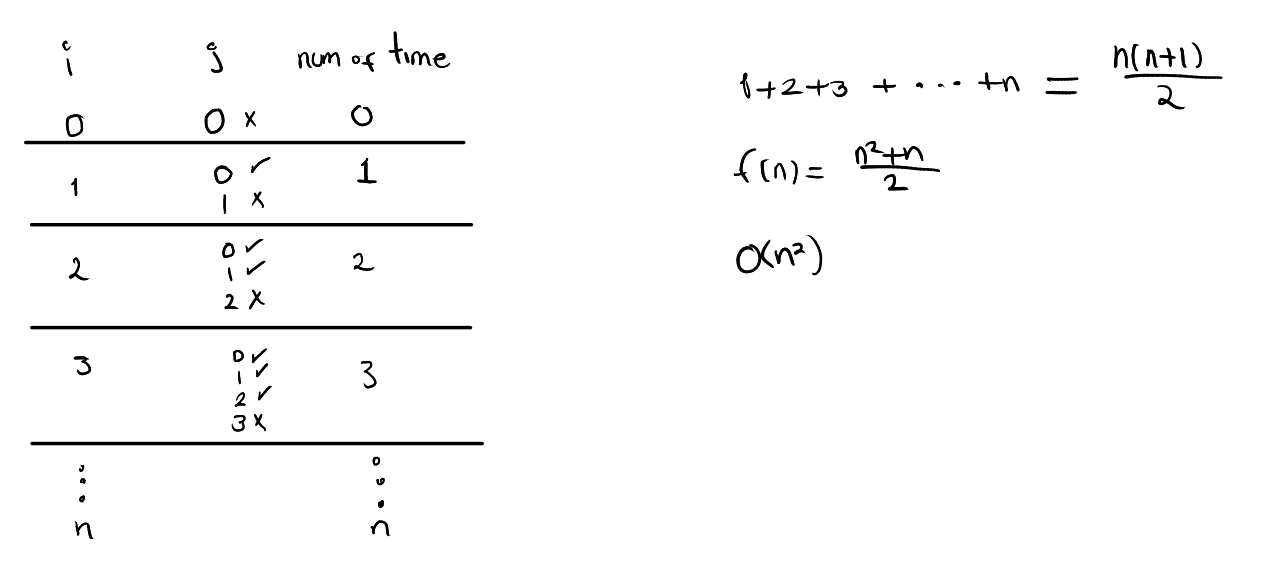 i j num of time
0 0 x 0
1 0 ✓ 1
1 x
2 0 ✓ 2
1 ✓
2 x
3 0 ✓ 3
1 ✓
2 ✓
3 x
⋮ ⋮
n n
1+2+3 + ... +n = n(n+1)/2
f(n) = n²+n/2
O(n²)